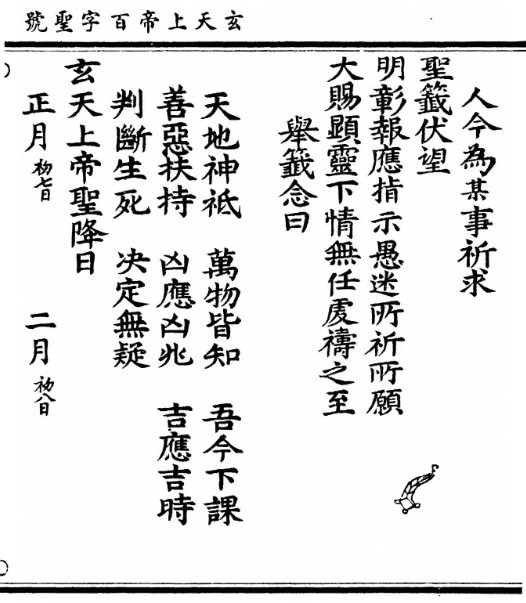 玄天上帝百字聖號
人今為某事祈求
聖籤伏望
明彰報應指示愚迷所祈所願
大賜顯靈下情無任虔禱之至
舉籤念曰
天地神祇 萬物皆知 吾今下課
善惡扶持 凶應凶兆 吉應吉時
判斷生死 决定無疑
玄天上帝聖降日
正月初七日 二月初八日